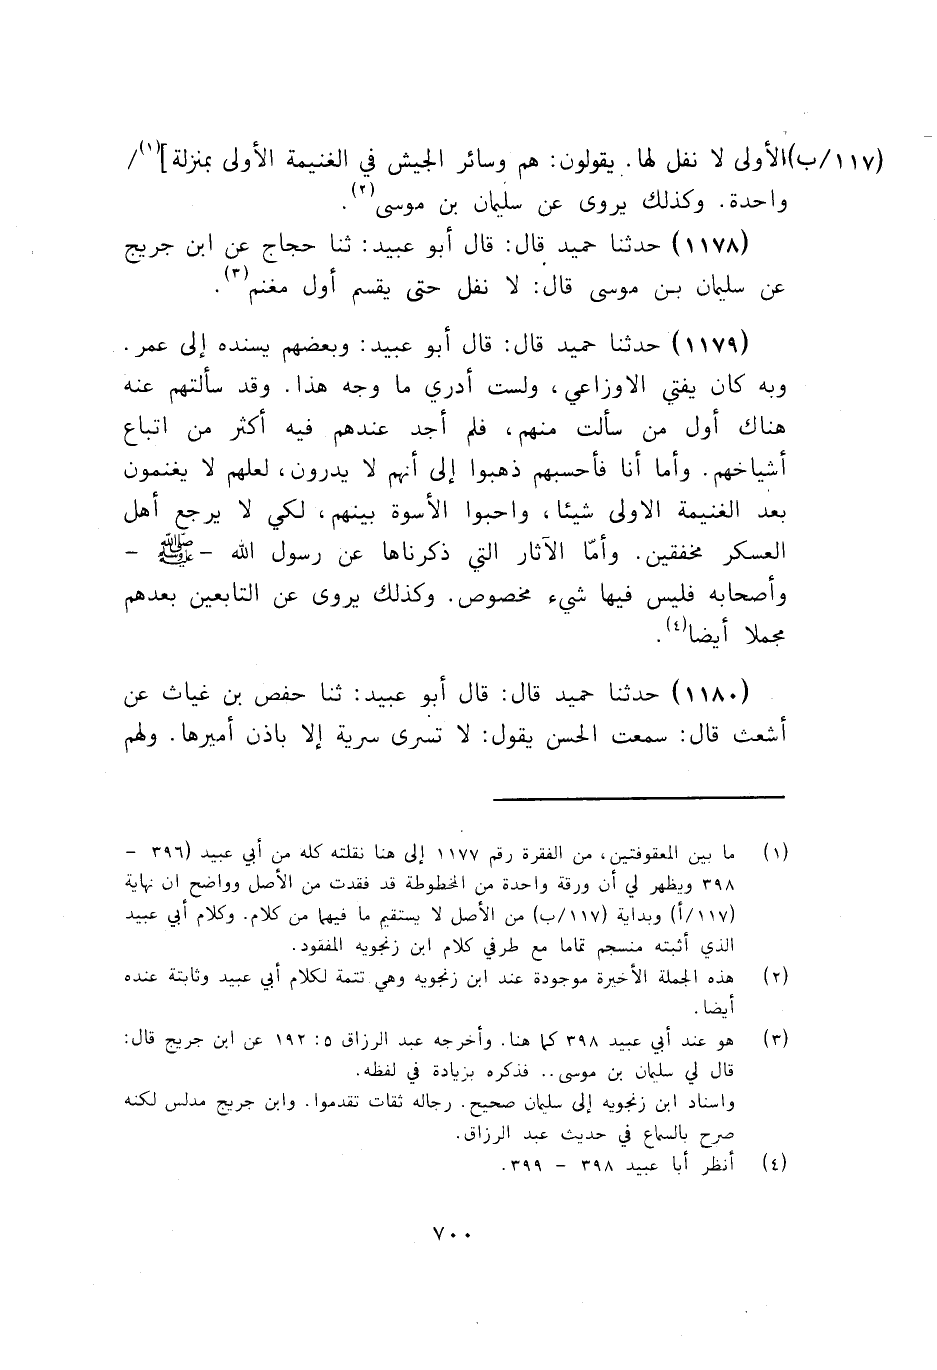 (١١٧/ب)الأولى لا نفل لها. يقولون: هم وسائر الجيش في الغنيمة الأولى بمنزلة](١)/
واحدة. وكذلك يروى عن سليمان بن موسى(٢).
(١١٧٨) حدثنا حميد قال: قال أبو عبيد: ثنا حجاج عن ابن جريج
عن سليمان بن موسى قال: لا نفل حتى يقسم أول مغنم(٣).
(١١٧٩) حدثنا حميد قال: قال أبو عبيد: وبعضهم يسنده إلى عمر.
وبه كان يفتي الاوزاعي، ولست أدري ما وجه هذا. وقد سألتهم عنه
هناك أول من سألت منهم، فلم أجد عندهم فيه أكثر من اتباع
أشياخهم. وأما أنا فأحسبهم ذهبوا إلى أنهم لا يدرون، لعلهم لا يغنمون
بعد الغنيمة الاولى شيئا، واحبوا الأسوة بينهم، لكي لا يرجع أهل
العسكر مخفقين. وأمّا الآثار التي ذكرناها عن رسول الله – ﷺ –
وأصحابه فليس فيها شيء مخصوص. وكذلك يروى عن التابعين بعدهم
مجملا أيضا(٤).
(١١٨٠) حدثنا حميد قال: قال أبو عبيد: ثنا حفص بن غياث عن
أشعث قال: سمعت الحسن يقول: لا تسرى سرية إلا باذن أميرها. ولهم
(١) ما بين المعقوفتين، من الفقرة رقم ١١٧٧ إلى هنا نقلته كله من أبي عبيد (٣٩٦ –
٣٩٨ ويظهر لي أن ورقة واحدة من المخطوطة قد فقدت من الأصل وواضح ان نهاية
(١١٧/أ) وبداية (١١٧/ب) من الأصل لا يستقيم ما فيهما من كلام. وكلام أبي عبيد
الذي أثبته منسجم تماما مع طرفي كلام ابن زنجويه المفقود.
(٢) هذه الجملة الأخيرة موجودة عند ابن زنجويه وهي تتمة لكلام أبي عبيد وثابتة عنده
أيضا.
(٣) هو عند أبي عبيد ٣٩٨ كما هنا. وأخرجه عبد الرزاق ٥: ١٩٢ عن ابن جريج قال:
قال لي سليمان بن موسى.. فذكره بزيادة في لفظه.
واسناد ابن زنجويه إلى سليمان صحيح. رجاله ثقات تقدموا. وابن جريج مدلس لكنه
صرح بالسماع في حديث عبد الرزاق.
(٤) أنظر أبا عبيد ٣٩٨ – ٣٩٩.
٧٠٠